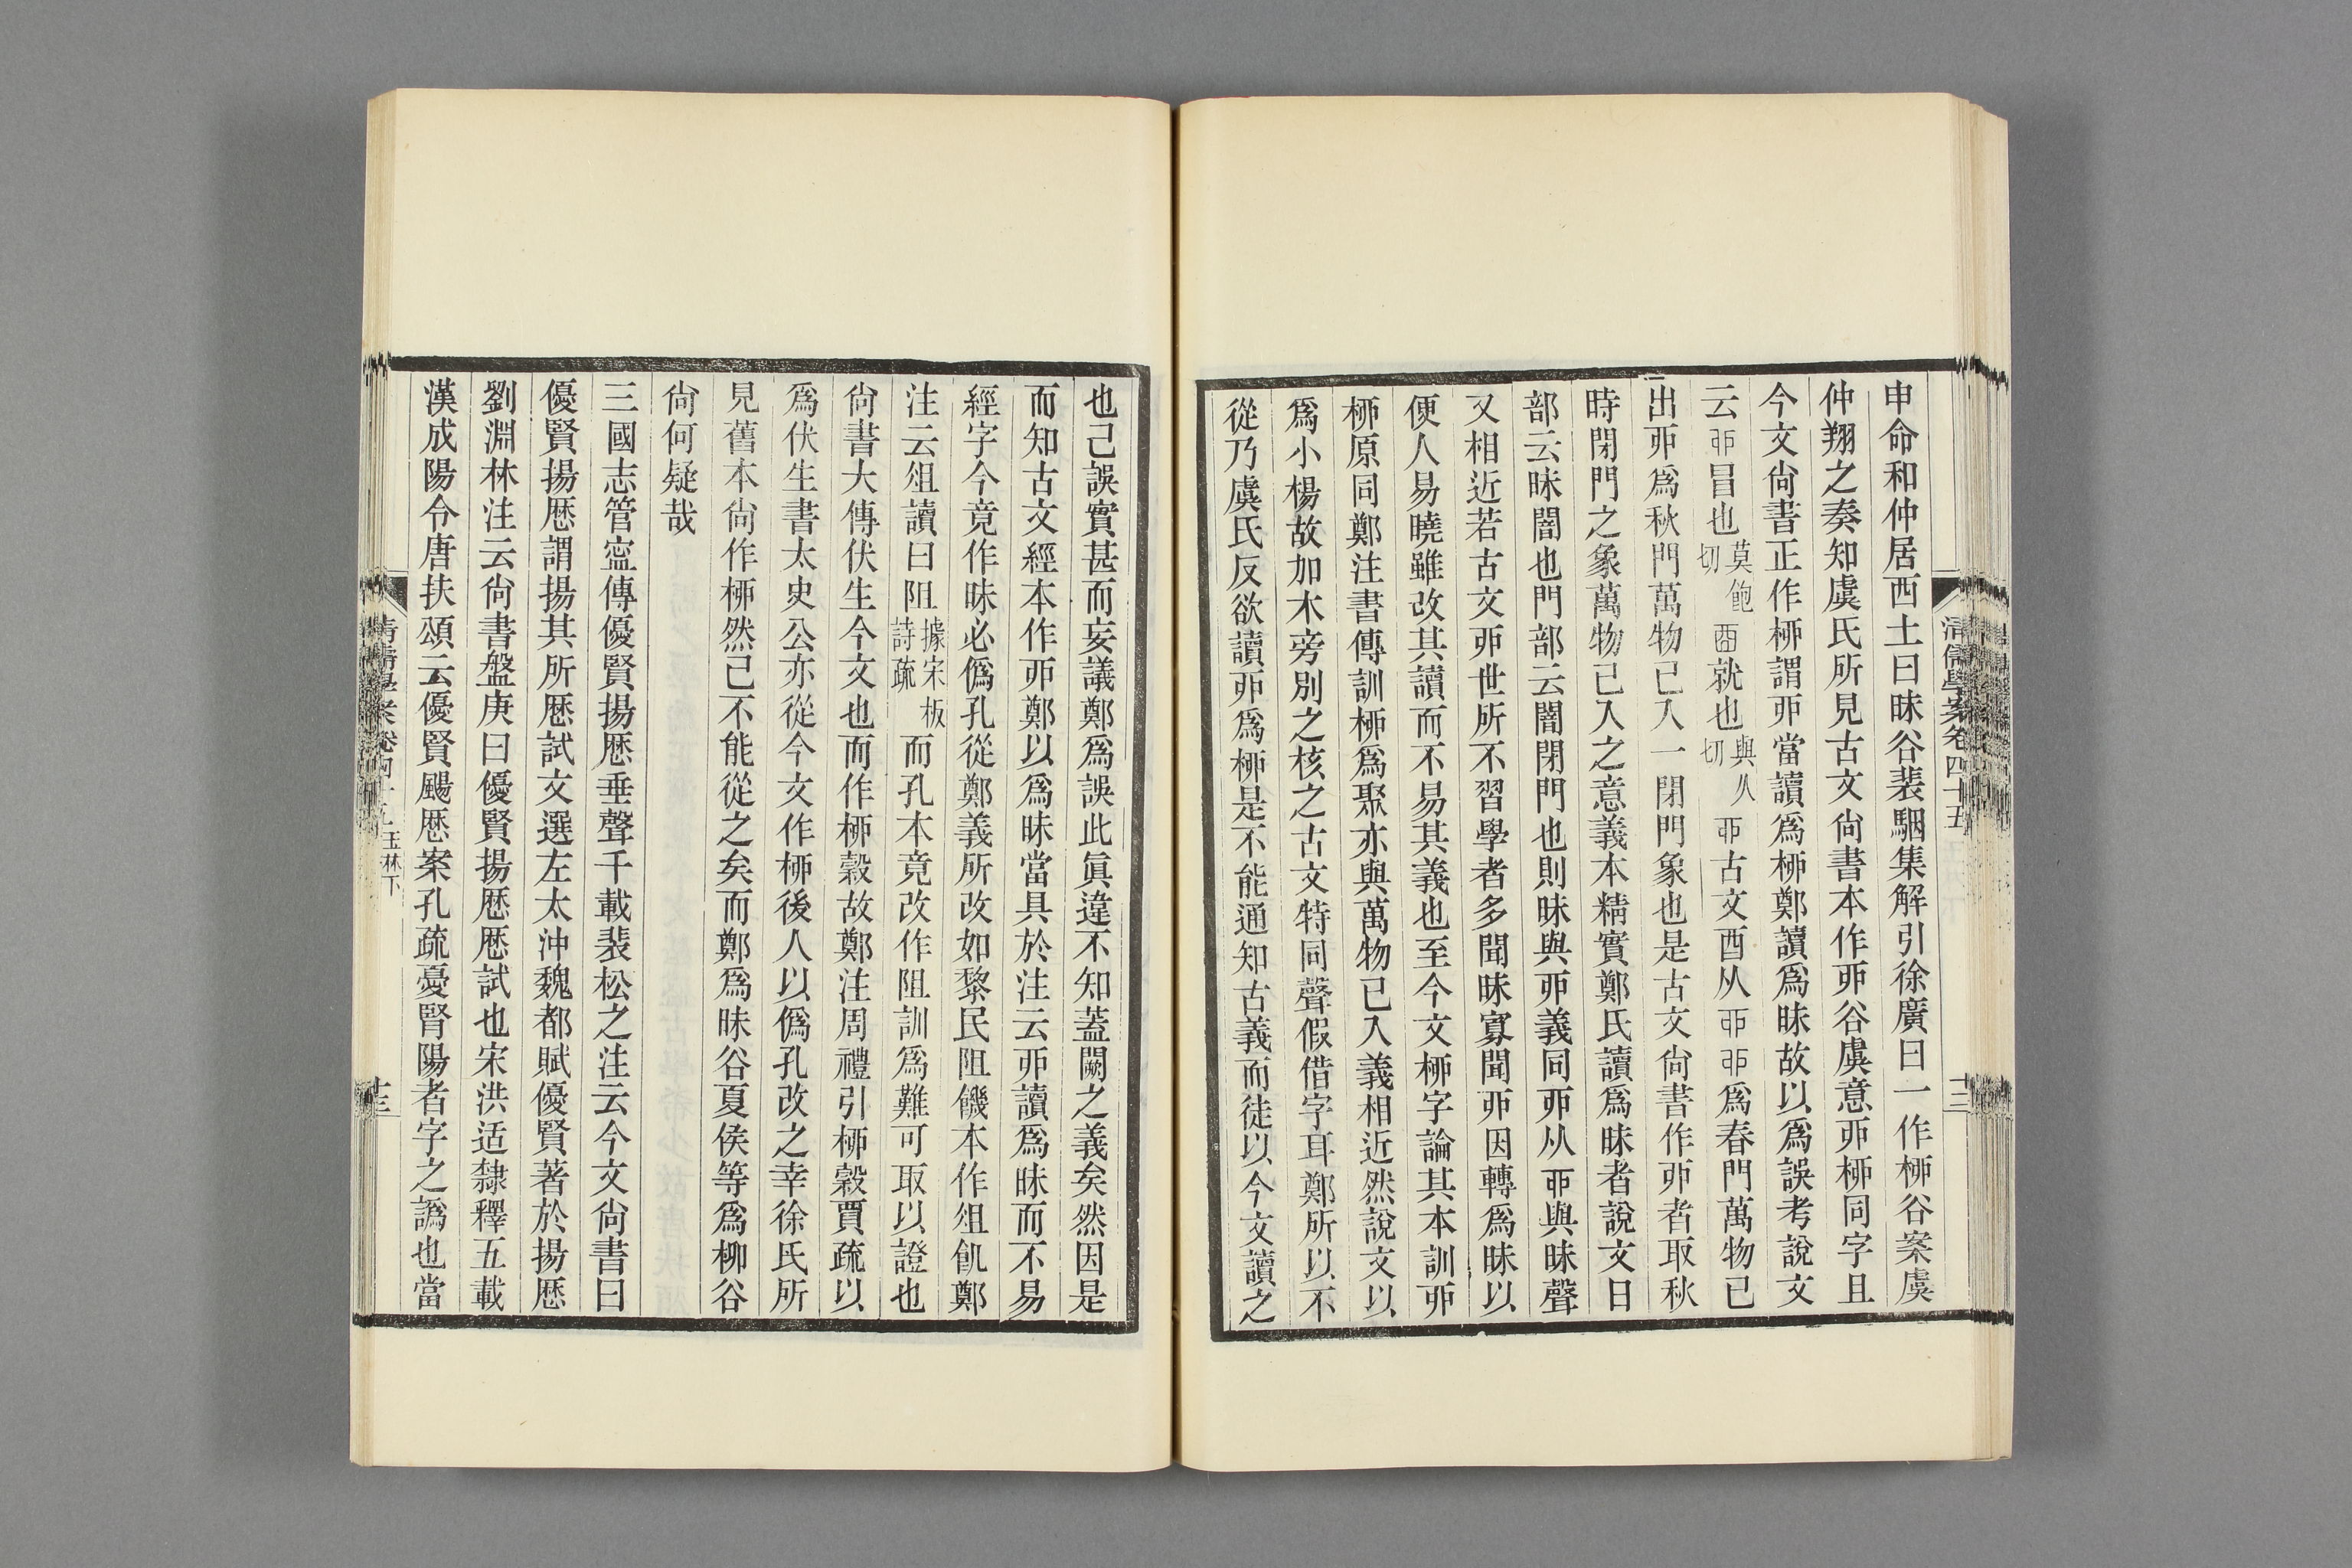 申命和仲居西土曰昧谷裴駰集解引徐廣曰一作桺谷案虞
仲翔之奏知虞氏所見古文尚書本作丣谷虞意丣桺同字且
今文尚書正作桺謂丣當讀爲桺鄭讀爲昧故以爲誤考說文
云戼冒也莫飽切酉就也與久切丣古文酉从戼戼爲春門萬物已
出丣爲秋門萬物已入一閉門象也是古文尚書作丣者取秋
時閉門之象萬物已入之意義本精實鄭氏讀爲昧者說文日
部云昧闇也門部云闇閉門也則昧與丣義同丣从戼與昧聲
又相近若古文丣世所不習學者多聞昧寡聞丣因轉爲昧以
便人易曉雖改其讀而不易其義也至今文桺字論其本訓丣
桺原同鄭注書傳訓桺爲聚亦與萬物已入義相近然說文以
爲小楊故加木旁別之核之古文特同聲假借字耳鄭所以不
從乃虞氏反欲讀丣爲桺是不能通知古義而徒以今文讀之
清儒學案卷四十五
十三
也己誤實甚而妄議鄭爲誤此眞違不知蓋闕之義矣然因是
而知古文經本作丣鄭以爲昧當具於注云丣讀爲昧而不易
經字今竟作昧必僞孔從鄭義所改如黎民阻饑本作俎飢鄭
注云俎讀曰阻據宋板詩疏而孔本竟改作阻訓爲難可取以證也
尚書大傳伏生今文也而作桺穀故鄭注周禮引桺穀賈疏以
爲伏生書太史公亦從今文作桺後人以僞孔改之幸徐氏所
見舊本尚作桺然己不能從之矣而鄭爲昧谷夏侯等爲柳谷
尚何疑哉
三國志管寍傳優賢揚厯垂聲千載裴松之注云今文尚書曰
優賢揚厯謂揚其所厯試文選左太沖魏都賦優賢著於揚厯
劉淵林注云尚書盤庚曰優賢揚厯厯試也宋洪适隸釋五載
漢成陽令唐扶頌云優賢颺厯案孔疏憂腎陽者字之譌也當
玉林下
十三